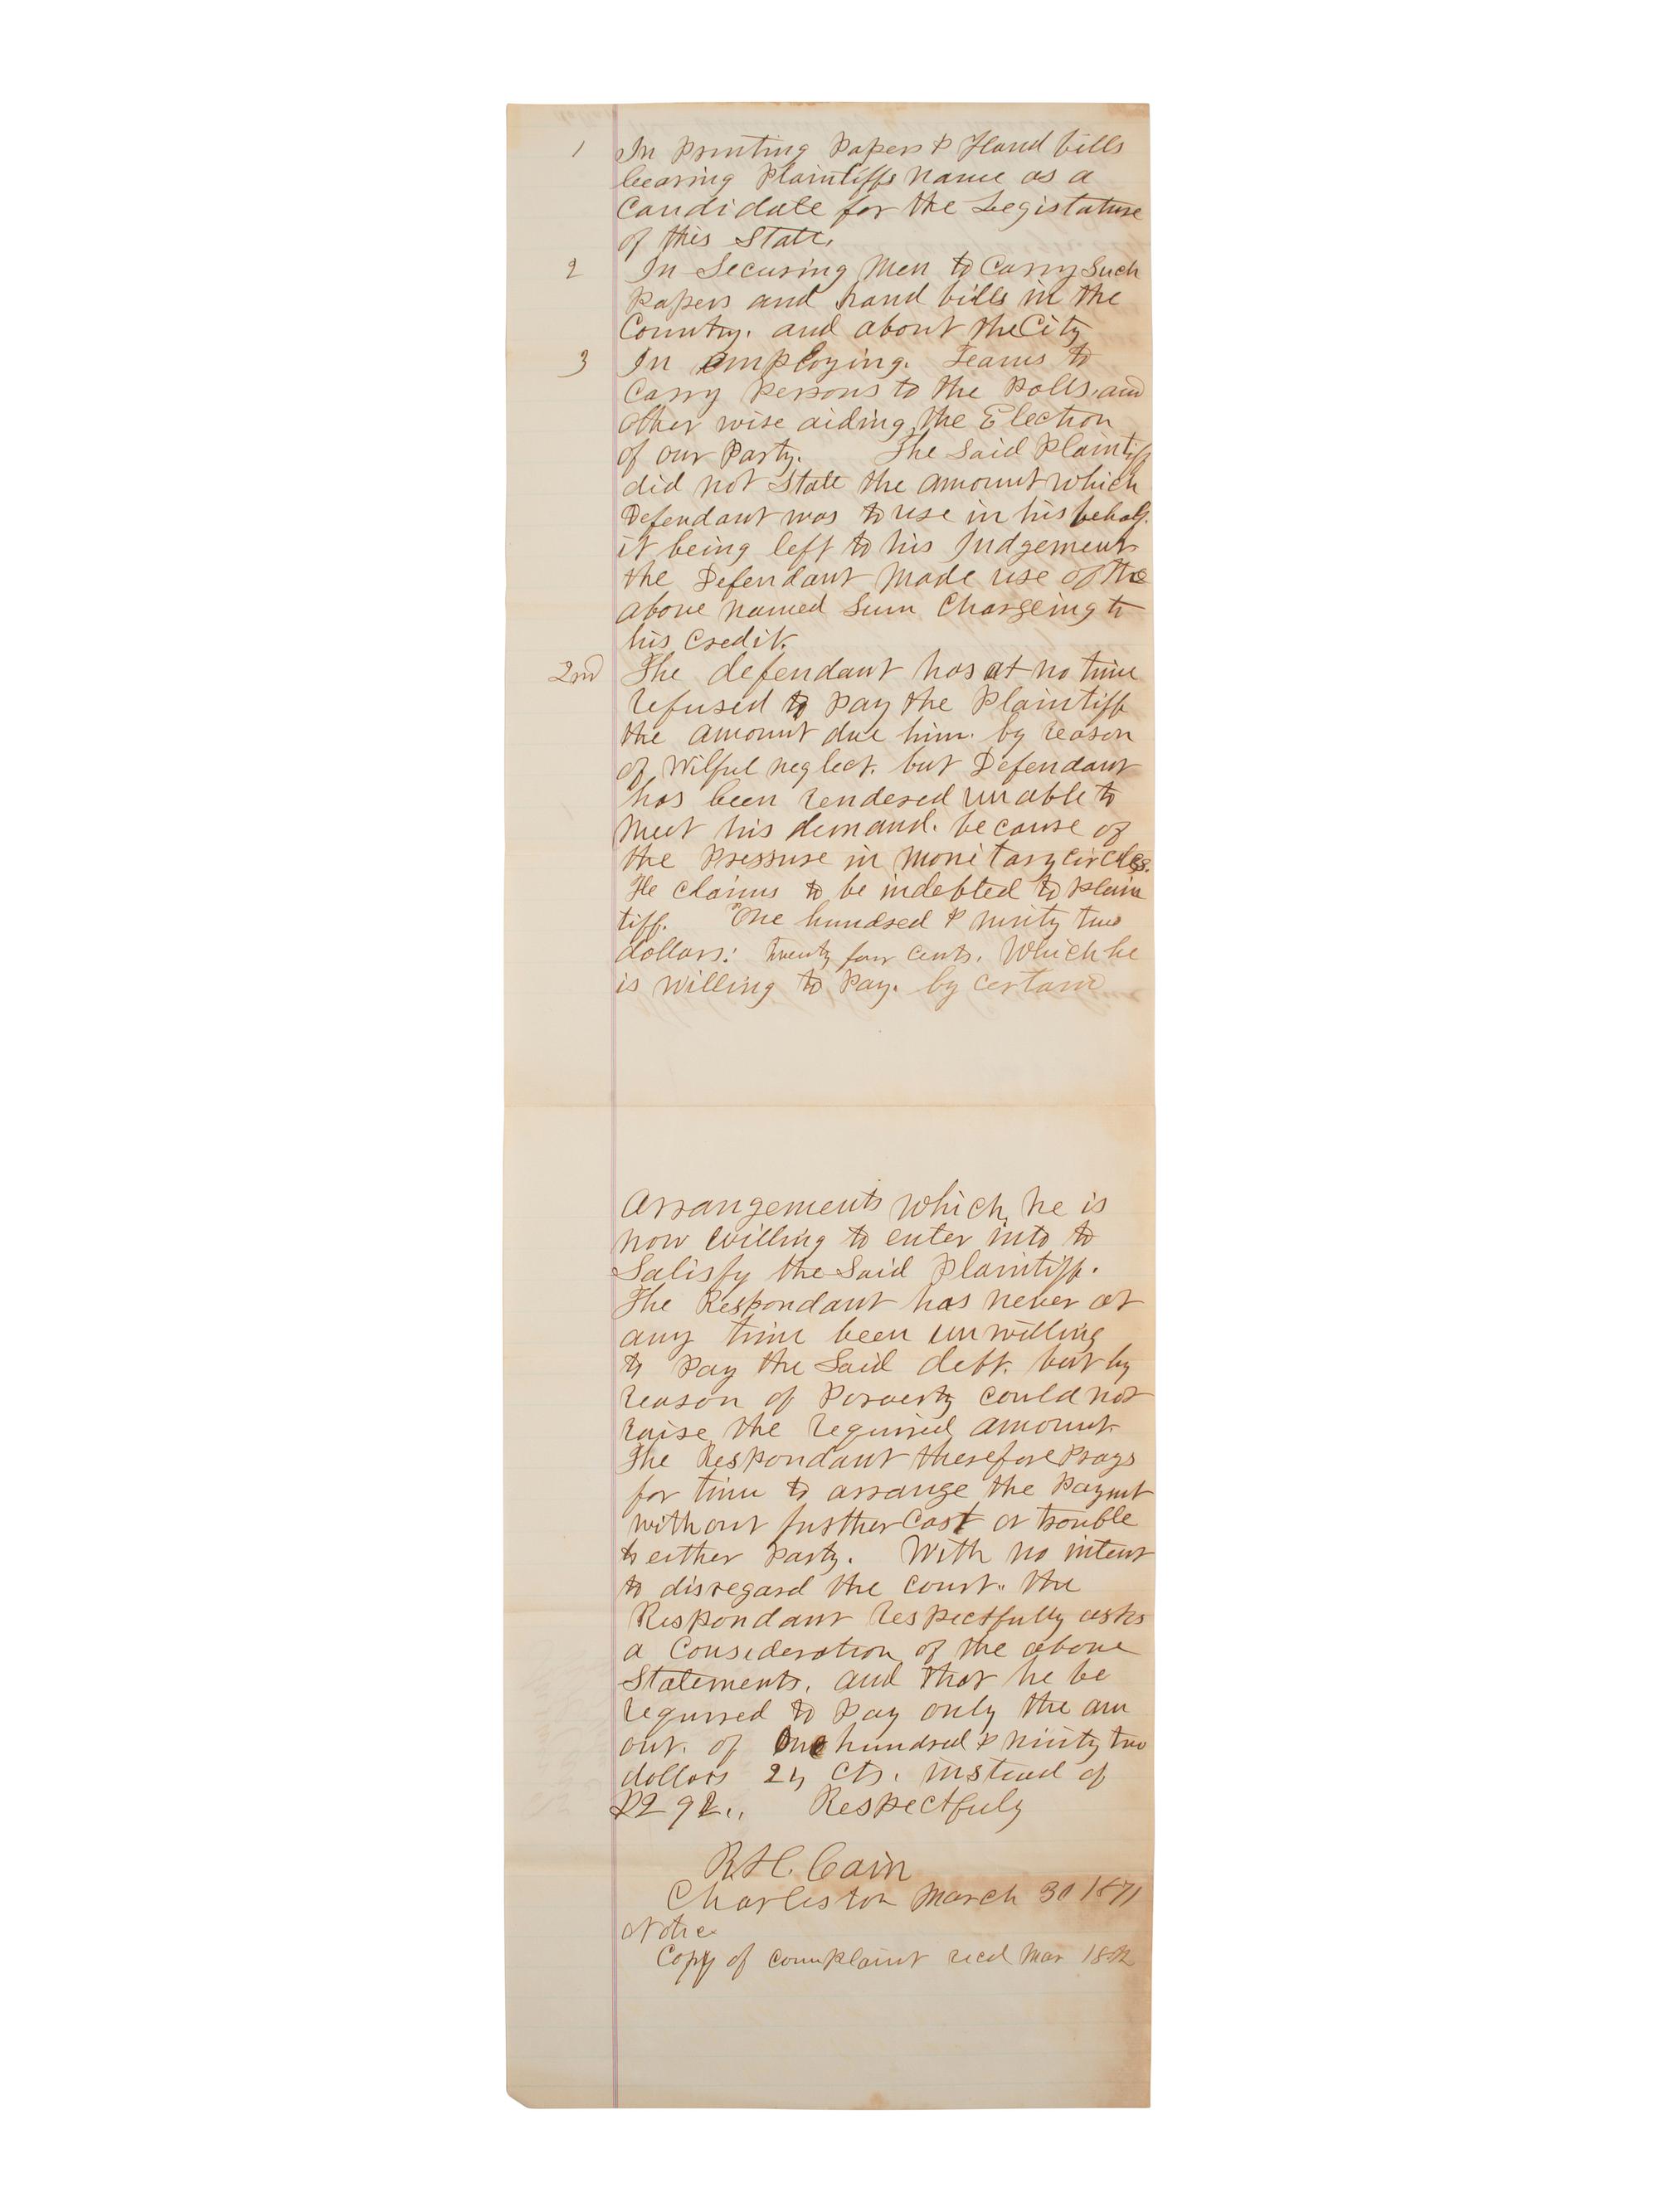 1 In Printing Papers & Hand bills
bearing Plaintiffs name as a
Candidate for the Legistature
of this State.
2 In Securing Men to Carry Such
Papers and hand bills in the
Country. and about the City
3 In employing. Teams to
Carry Persons to the Polls, and
other wise aiding the Election
of our Party. The Said Plaintiff
did not State the amount which
Defendant was to use in his behalf.
it being left to his Judgement
the Defendant Made use of the
above named Sum Chargeing to
his Credit.
2nd The defendant has at no time
refused to pay the Plaintiff
the amount due him. by reason
of Wilful neglect. but Defendant
has been rendered unable to
Meet his demand. because of
the Pressure in monitary circles.
He claims to be indebted to Plain
tiff. One hundred & ninity two
dollars: twenty four cents. Which he
is willing to Pay. by certain
Arrangements which he is
now willing to enter into to
Satisfy the Said Plaintiff.
The Respondant has never at
any time been unwilling
to Pay the Said debt. but by
reason of Poverty could not
raise the required amount.
The Respondant therefore Prays
for time to arrange the Paymt
without further Cost or trouble
to either Party. With no intent
to disregard the court. the
Respondant respectfully asks
a Consideration of the above
Statements, and that he be
required to Pay only the am
out. of One hundred & ninity two
dollars 24 cts. instead of
$292.. Respectfuly
R.H. Cain
Charleston March 30 1871
Note
Copy of complaint recd Mar 18th